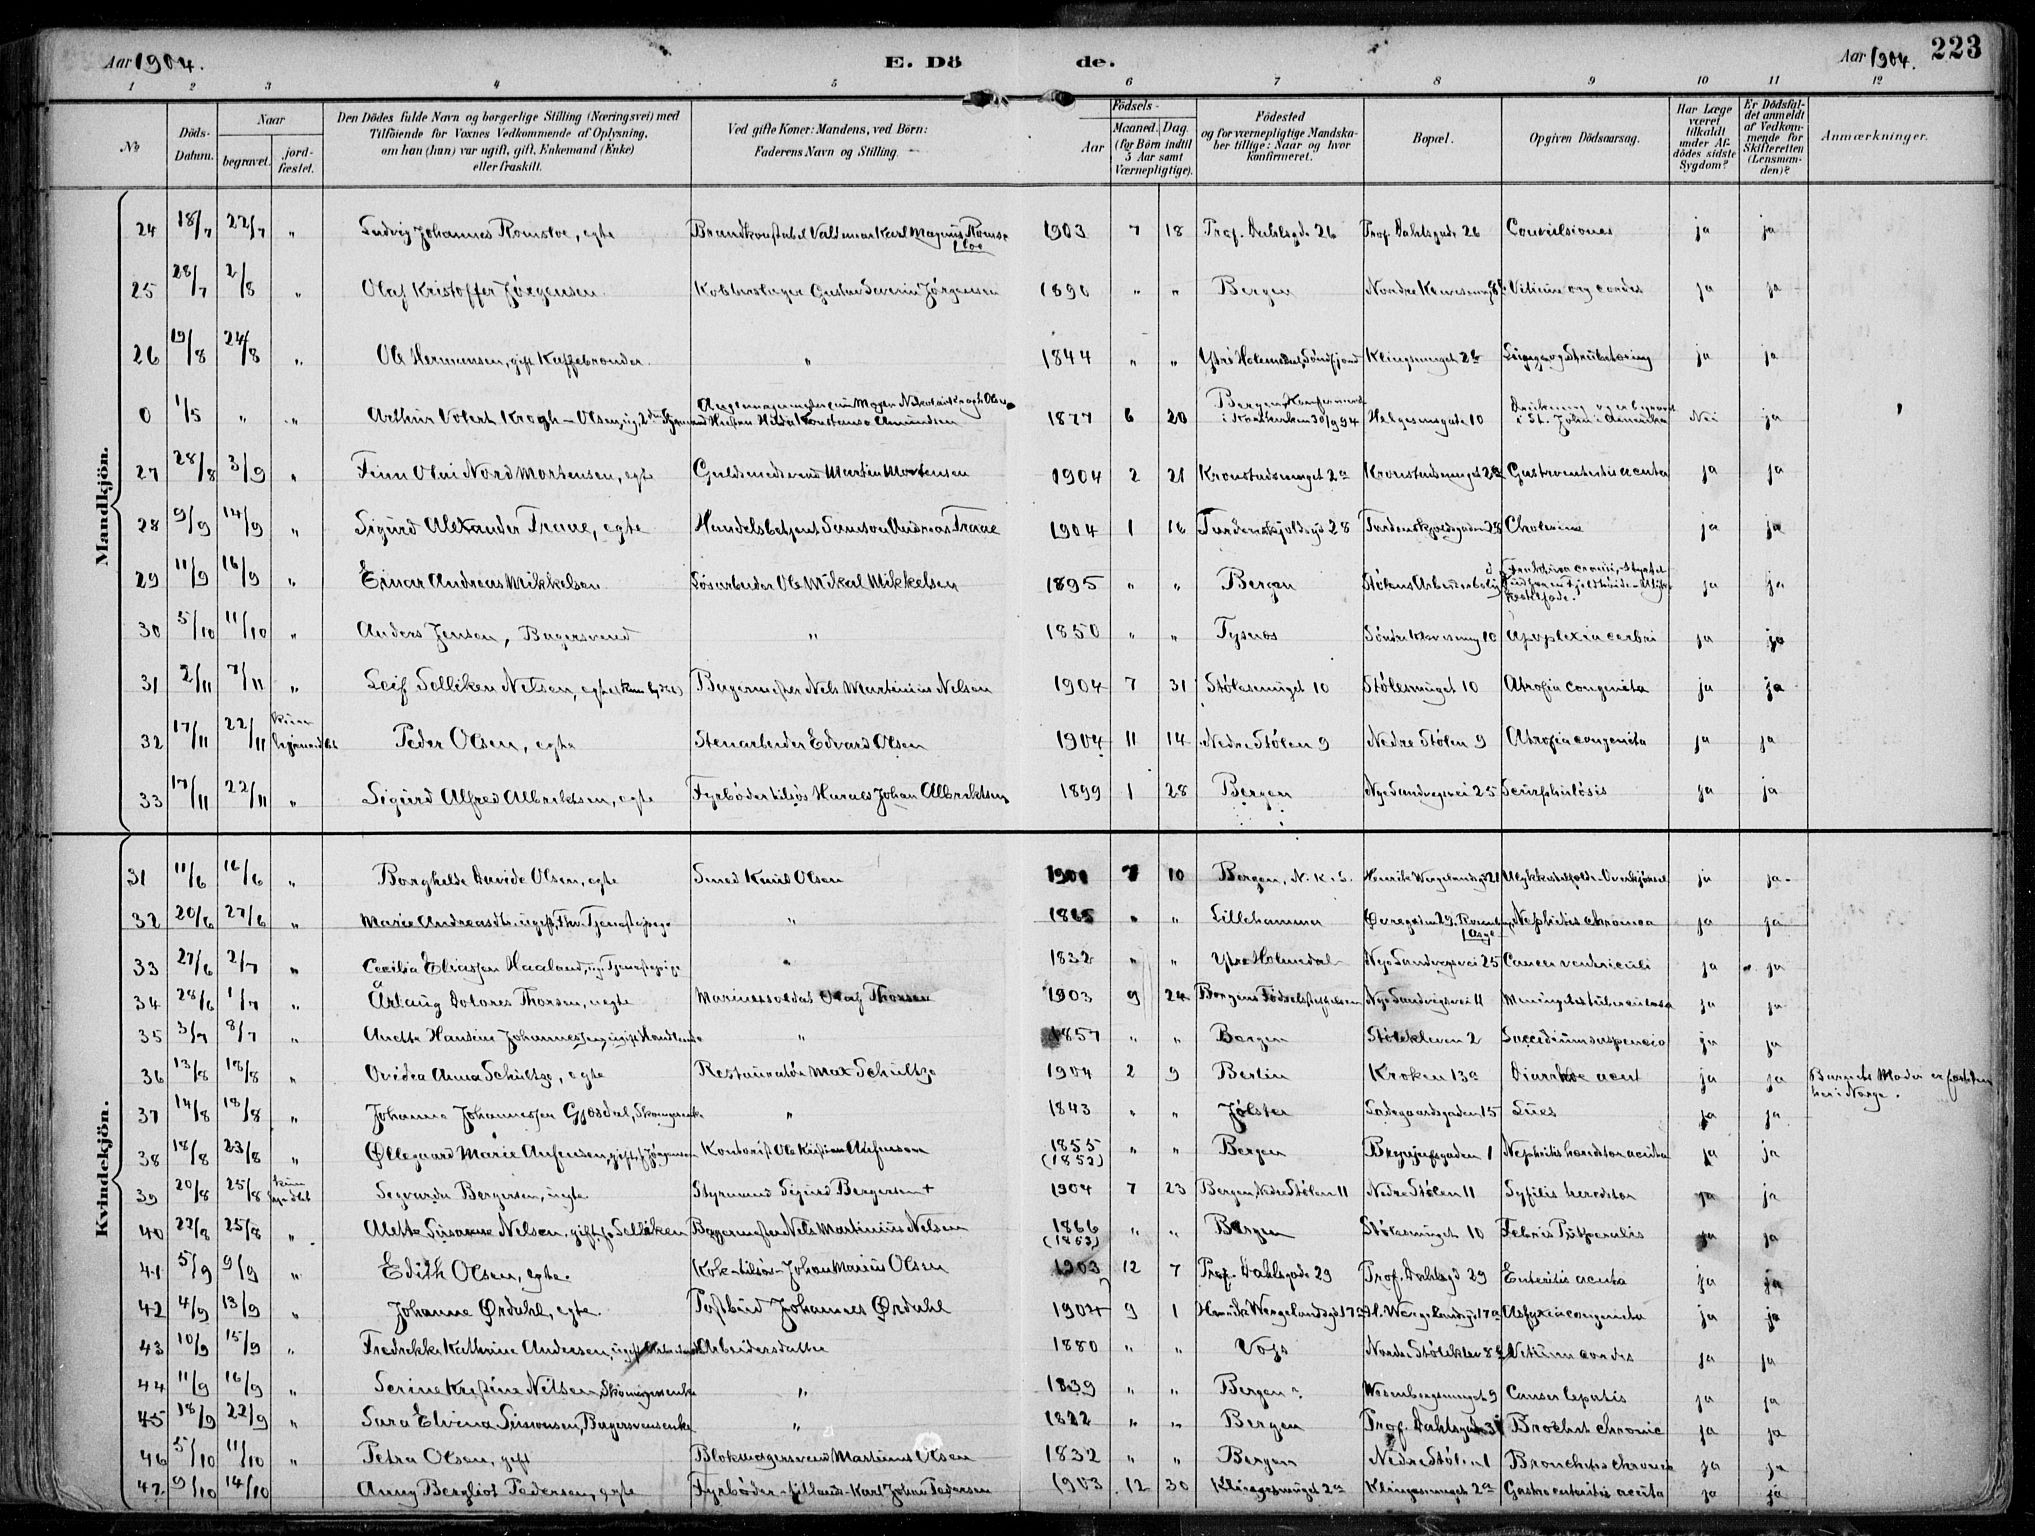 Aar 1904. E. Dö de. Aar 1904. 223
1 2 3 4 5 6 7 8 9 10 11 12
No
Döds-Datum.
Naar
begravet.
jord-fæstet.
Den Dödes fulde Navn og borgerlige Stilling (Næringsvei) med
Tilföiende for Voxnes Vedkommende af Oplysning,
om han (hun) var ugift, gift, Enkemand (Enke)
eller fraskilt.
Ved gifte Koner: Mandens, ved Börn:
Faderens Navn og Stilling.
Födsels-
Aar
Maaned.
Dag.
(for Börn indtil
5 Aar samt
Værnepligtige).
Födested
og for værnepligtige Mandska-
ber tillige: Naar og hvor
konfirmeret.
Bopæl.
Opgiven Dödsaarsag.
Har Læge
været
tilkaldt
under Af-
dödes sidste
Sygdom?
Er Dödsfal-
det anmeldt
af Vedkom-
mende for
Skifteretten
(Lensman-
den)?
Anmærkninger.
Mandkjön.
24 18/7 22/7 " Ludvig Johannes Romsloe, egte Brandkonstabel Valdemar Karl Magnus Romsloe 1903 7 18 Prof. Dahlsgd. 26 Prof. Dahlsgade 26 Convulsiones ja ja
25 28/7 2/8 " Olaf Kristoffer Jørgensen Kobberslager Gustav Severin Jørgensen 1890 " " Bergen Vitium org cordis ja ja
26 19/8 24/8 " Ole Hermansen, gift Kaffebrænder " 1844 " " Ytre Holmedal, Søndfjord Klingesmuget 2b ja ja
0 1/5 " " Arthur Volert Krogh-Olsen, ug. 1877 6 20 Bergen, Konfirmeret i Korskirken 30/9 94 Helgesensgate 10 i St. John i Amerika Nei ja
27 28/8 3/9 " Finn Olai Nord Mortensen, egte Guldsmedsvend Martin Mortensen 1904 2 21 Kronstadsmuget 2a Kronstadsmuget 2a Gastroenteritis acuta ja ja
28 9/9 14/9 " Sigurd Alexander Traae, egte Handelsbetjent Samson Andreas Traae 1904 1 16 Tordenskjoldsgd 28 Tordenskjoldsgaden 28 Cholerine ja ja
29 11/9 16/9 " Einar Andreas Mikkelsen Løsarbeider Ole Mikal Mikkelsen 1895 " " Bergen Stølens Arbeiderbolig ja ja
30 5/10 11/10 " Anders Jensen, Bagersvend " 1850 " " Tysnes 10 Apoplexia cerebri ja ja
31 2/11 7/11 " Leif Selliken Nelsen, egte Bagermester Nels Martinius Nelsen 1904 7 31 Stølesmuget 10 Stølesmuget 10 Atrofia congenita ja ja
32 17/11 22/11 Peder Olsen, egte Stenarbeider Edvard Olsen 1904 11 14 Nedre Stølen 9 Nedre Stølen 9 Atrofia congenita ja ja
33 17/11 22/11 " Sigurd Alfred Albriktsen, egte Fyrbøder tilsjøs Harald Johan Albriktsen 1899 1 28 Bergen Nye Sandvigsvei 25 Scrophulosis ja ja
Kvindekjön.
31 11/6 16/6 " Borghilde Davide Olsen, egte Smed Knud Olsen 7 10 Bergen, N. K. S. Ulykkestilfælde. Overkjørsel ja ja
32 20/6 27/6 " Marie Andreasdtr. ugift, Fhv. Tjenestepige " 1865 " " Lillehammer Øvregaden 29. Nephritis chronica ja ja
33 27/6 2/7 " Cecilia Eliassen Haaland, ug. Tjenestepige " 1832 " " Ytre Holmedal Nye Sandvigsvei 25 Cancer ventriculi ja ja
34 28/6 1/7 " Aslaug Dolores Thorsen, uegte Marinesoldat Olaf Thorsen 1903 9 24 Bergens Fødselsstiftelsen Nye Sandvigsvei 11 Meningitis tuberculosa ja ja
35 3/7 8/7 " Anette Hansine Johannessen, ugift " 1857 " " Bergen Stølekleven 2 ja ja
36 13/8 18/8 " Ovidea Anna Schultze, egte Restauratør Max Schultze 1904 2 9 Berlin Kroken 13a Diarrhoe acut ja ja Barnets Moder er født her i Norge.
37 14/8 18/8 " Johanne Johannessen Gjøsdal, " 1843 " " Jølster Ladegaardsgaden 15 Lues ja ja
38 18/8 23/8 " Øllegaard Marie Anfinsen, gift, f. Jørgensen Kontorist Ole Kristian Anfinsen 1855 (1852) " " Bergen 1 ja ja
39 20/8 25/8 Segvarda Bergersen, uegte Styrmand Sigurd Bergersen + 1904 7 23 Bergen, Nedre Stølen 11 Nedre Stølen 11 Syfilis hereditær ja ja
40 22/8 25/8 " Alette Susanne Nelsen, gift, f. Selliken Bagermester Nels Martinius Nelsen 1866 (1853) " " Bergen Stølesmuget 10 Febris Puerperalis ja ja
41 5/9 9/9 " Edith Olsen, egte. Kok-tilsøs- Johan Marius Olsen 1903 12 7 Prof. Dahlsgade 29 Prof. Dahlsgd 29 Enteritis acuta ja ja
42 4/9 13/9 " Johanne Ørdahl, egte. Postbud Johannes Ørdahl 1904 9 1 Henrik Wergelandsgd 17a H. Wergelandsgd 17a Asfyxia congenita ja ja
43 10/9 15/9 " Fredrikke Kathrine Andersen, ugift Arbeidersdatter 1880 " " Voss Vitium cordis ja ja
44 11/9 16/9 " Serine Kristine Nilsen, " 1839 " " Bergen Wesenbergsmuget 9 Canser hepatis ja ja
45 18/9 22/9 " Sara Elvina Simonsen, Bagersvensenke " 1822 " " Bergen Prof. Dahlsgade Bronchit chronic ja ja
46 5/10 11/10 " Petra Olsen, gift Blokmagersvend Martinus Olsen 1832 " " Bergen Nedre Stølen 1 Bronchitis chronica ja ja
47. 9/10 14/10 " Anny Bergliot Pedersen, egte Fyrbøder-tillands- Karl Johan Pedersen 1903 12 30 Klingesmuget 2a Klingesmuget 2a Gastroenteritis acuta ja ja